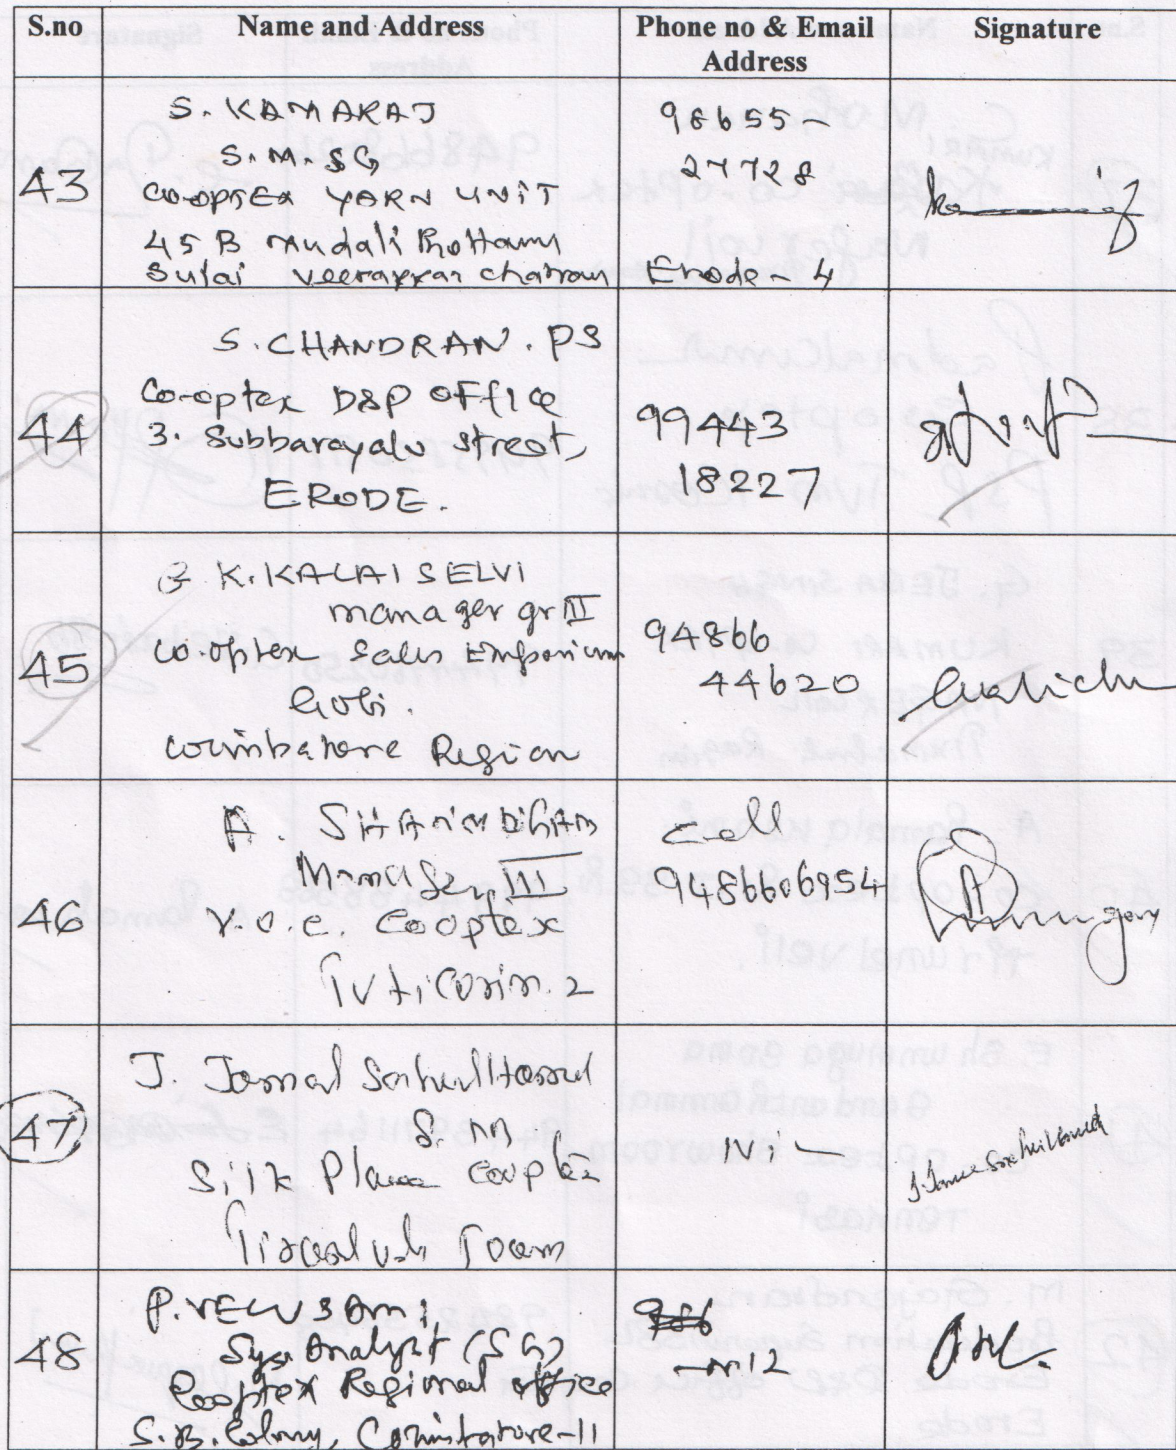 S.no Name and Address Phone no & Email Address Signature
43
S. KAMARAJ
S.M. SG
CO-OPTEX YARN UNIT
45 B Mudali Thottam
Sulai Veerappan chatram Erode - 4
98655 -
27728
44
S. CHANDRAN. PS
Co-optex D&P OFFICE
3. Subbarayalu street,
ERODE.
99443
18227
45
K. KALAISELVI
manager gr III
co.optex sales Emporium
Gobi.
Coimbatore Region
94866
44620
46
A.
Manager III
V.O.C. Cooptex
Tuticorin. 2
Cell
9486606954
47
J. Jamal
S. M.
Silk Plaza Cooptex
Town
Nil
48
P. VELUSAMI
Sys. Analyst (SG)
Cooptex Regional office
S.B. Colony, Coimbatore-11
986
Nil